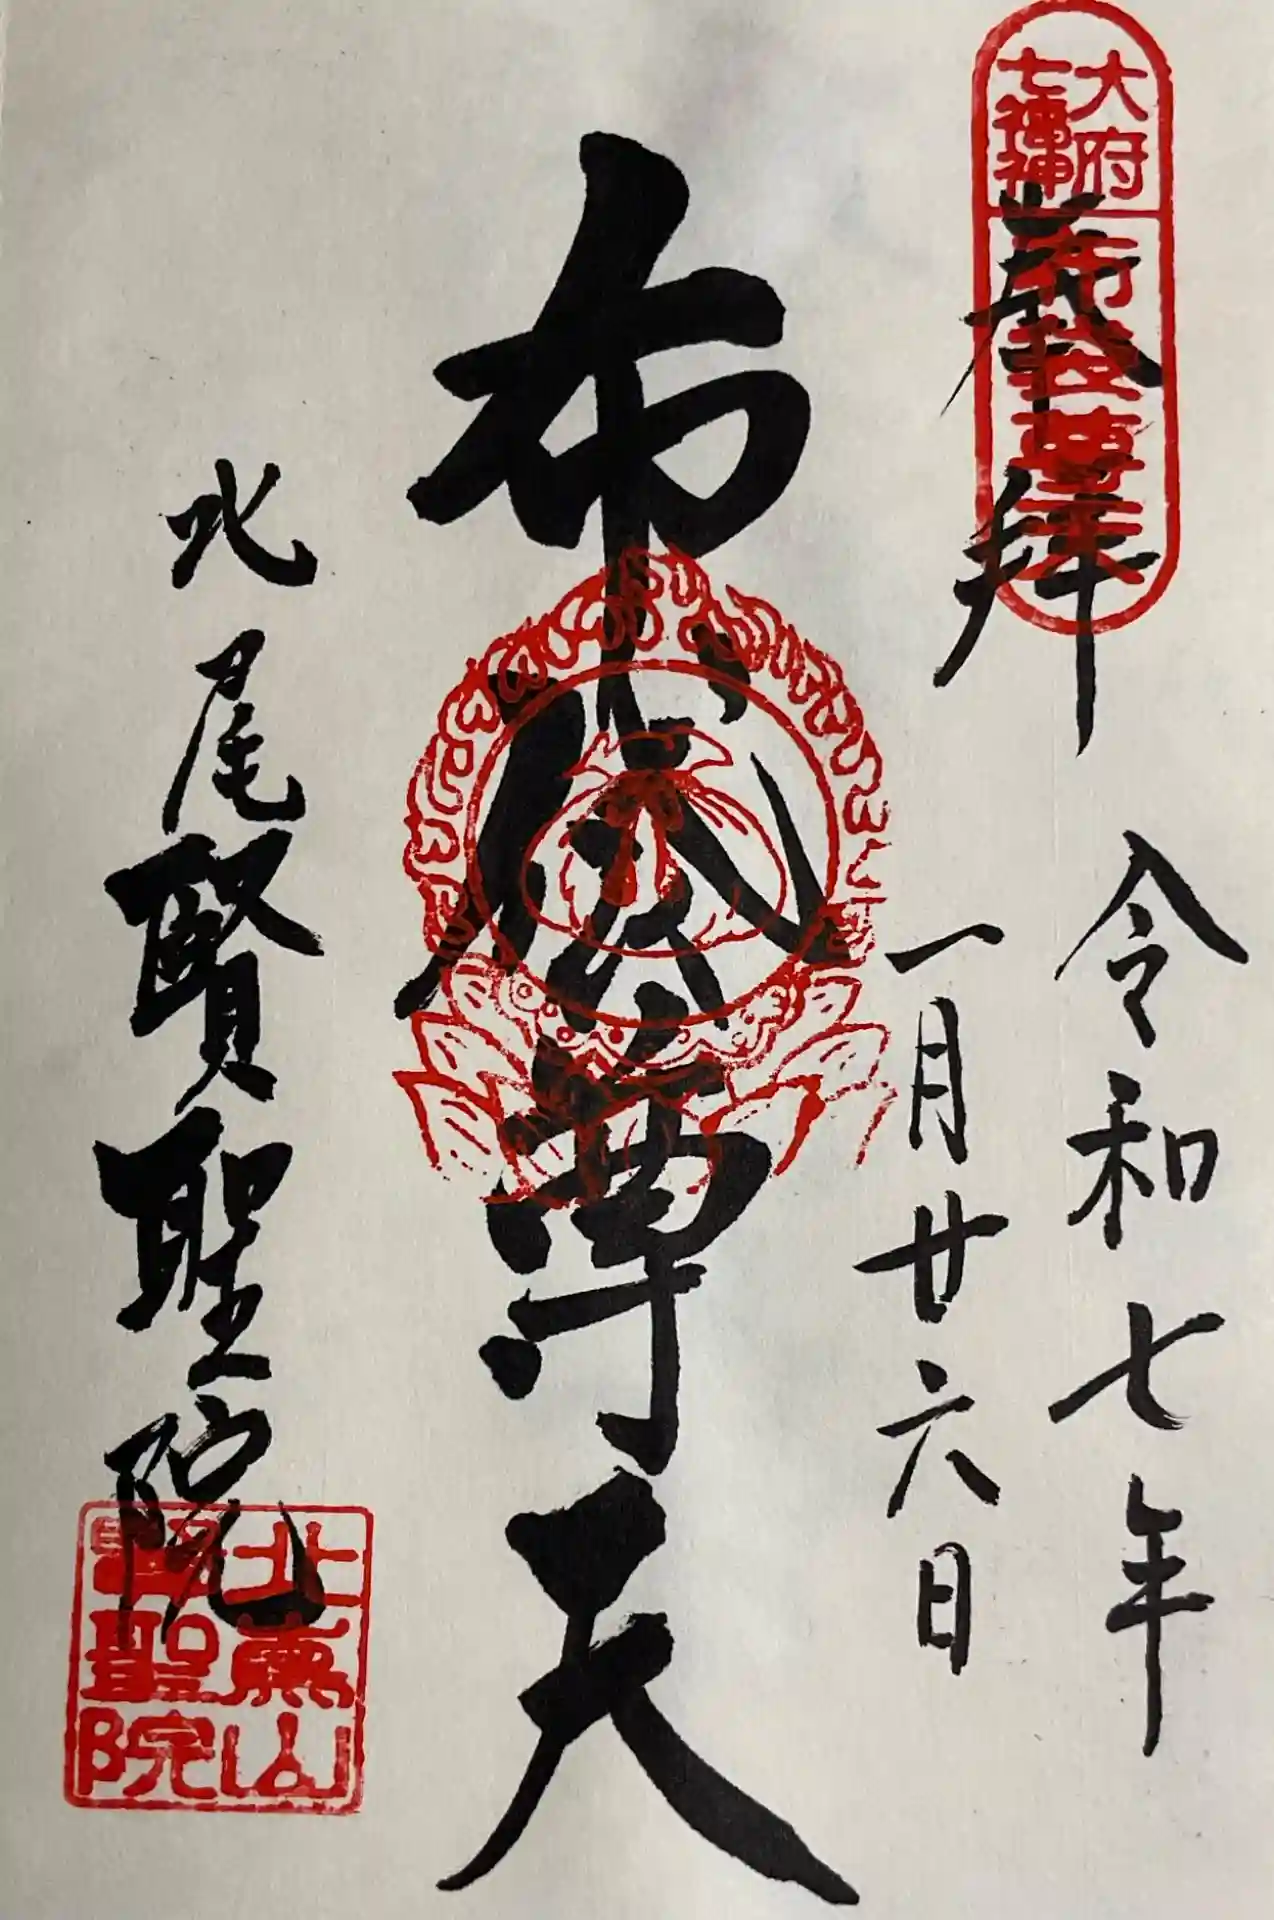 大府
七福神
布袋尊天
奉拝
令和七年
一月廿六日
布袋尊天
北尾賢聖院
北山
賢聖院